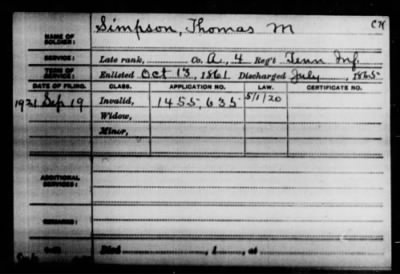 CH
NAME OF SOLDIER: Simpson, Thomas M
SERVICE: Late rank, Co. A, 4 Reg't Tenn Inf.
TERM OF SERVICE: Enlisted Oct 13, 1861. Discharged July , 1865
DATE OF FILING. CLASS. APPLICATION NO. LAW. CERTIFICATE NO.
1921 Sep 19 Invalid, 1455,635 5/1/20
Widow,
Minor,
ADDITIONAL SERVICES:
REMARKS:
Died , 1 , at